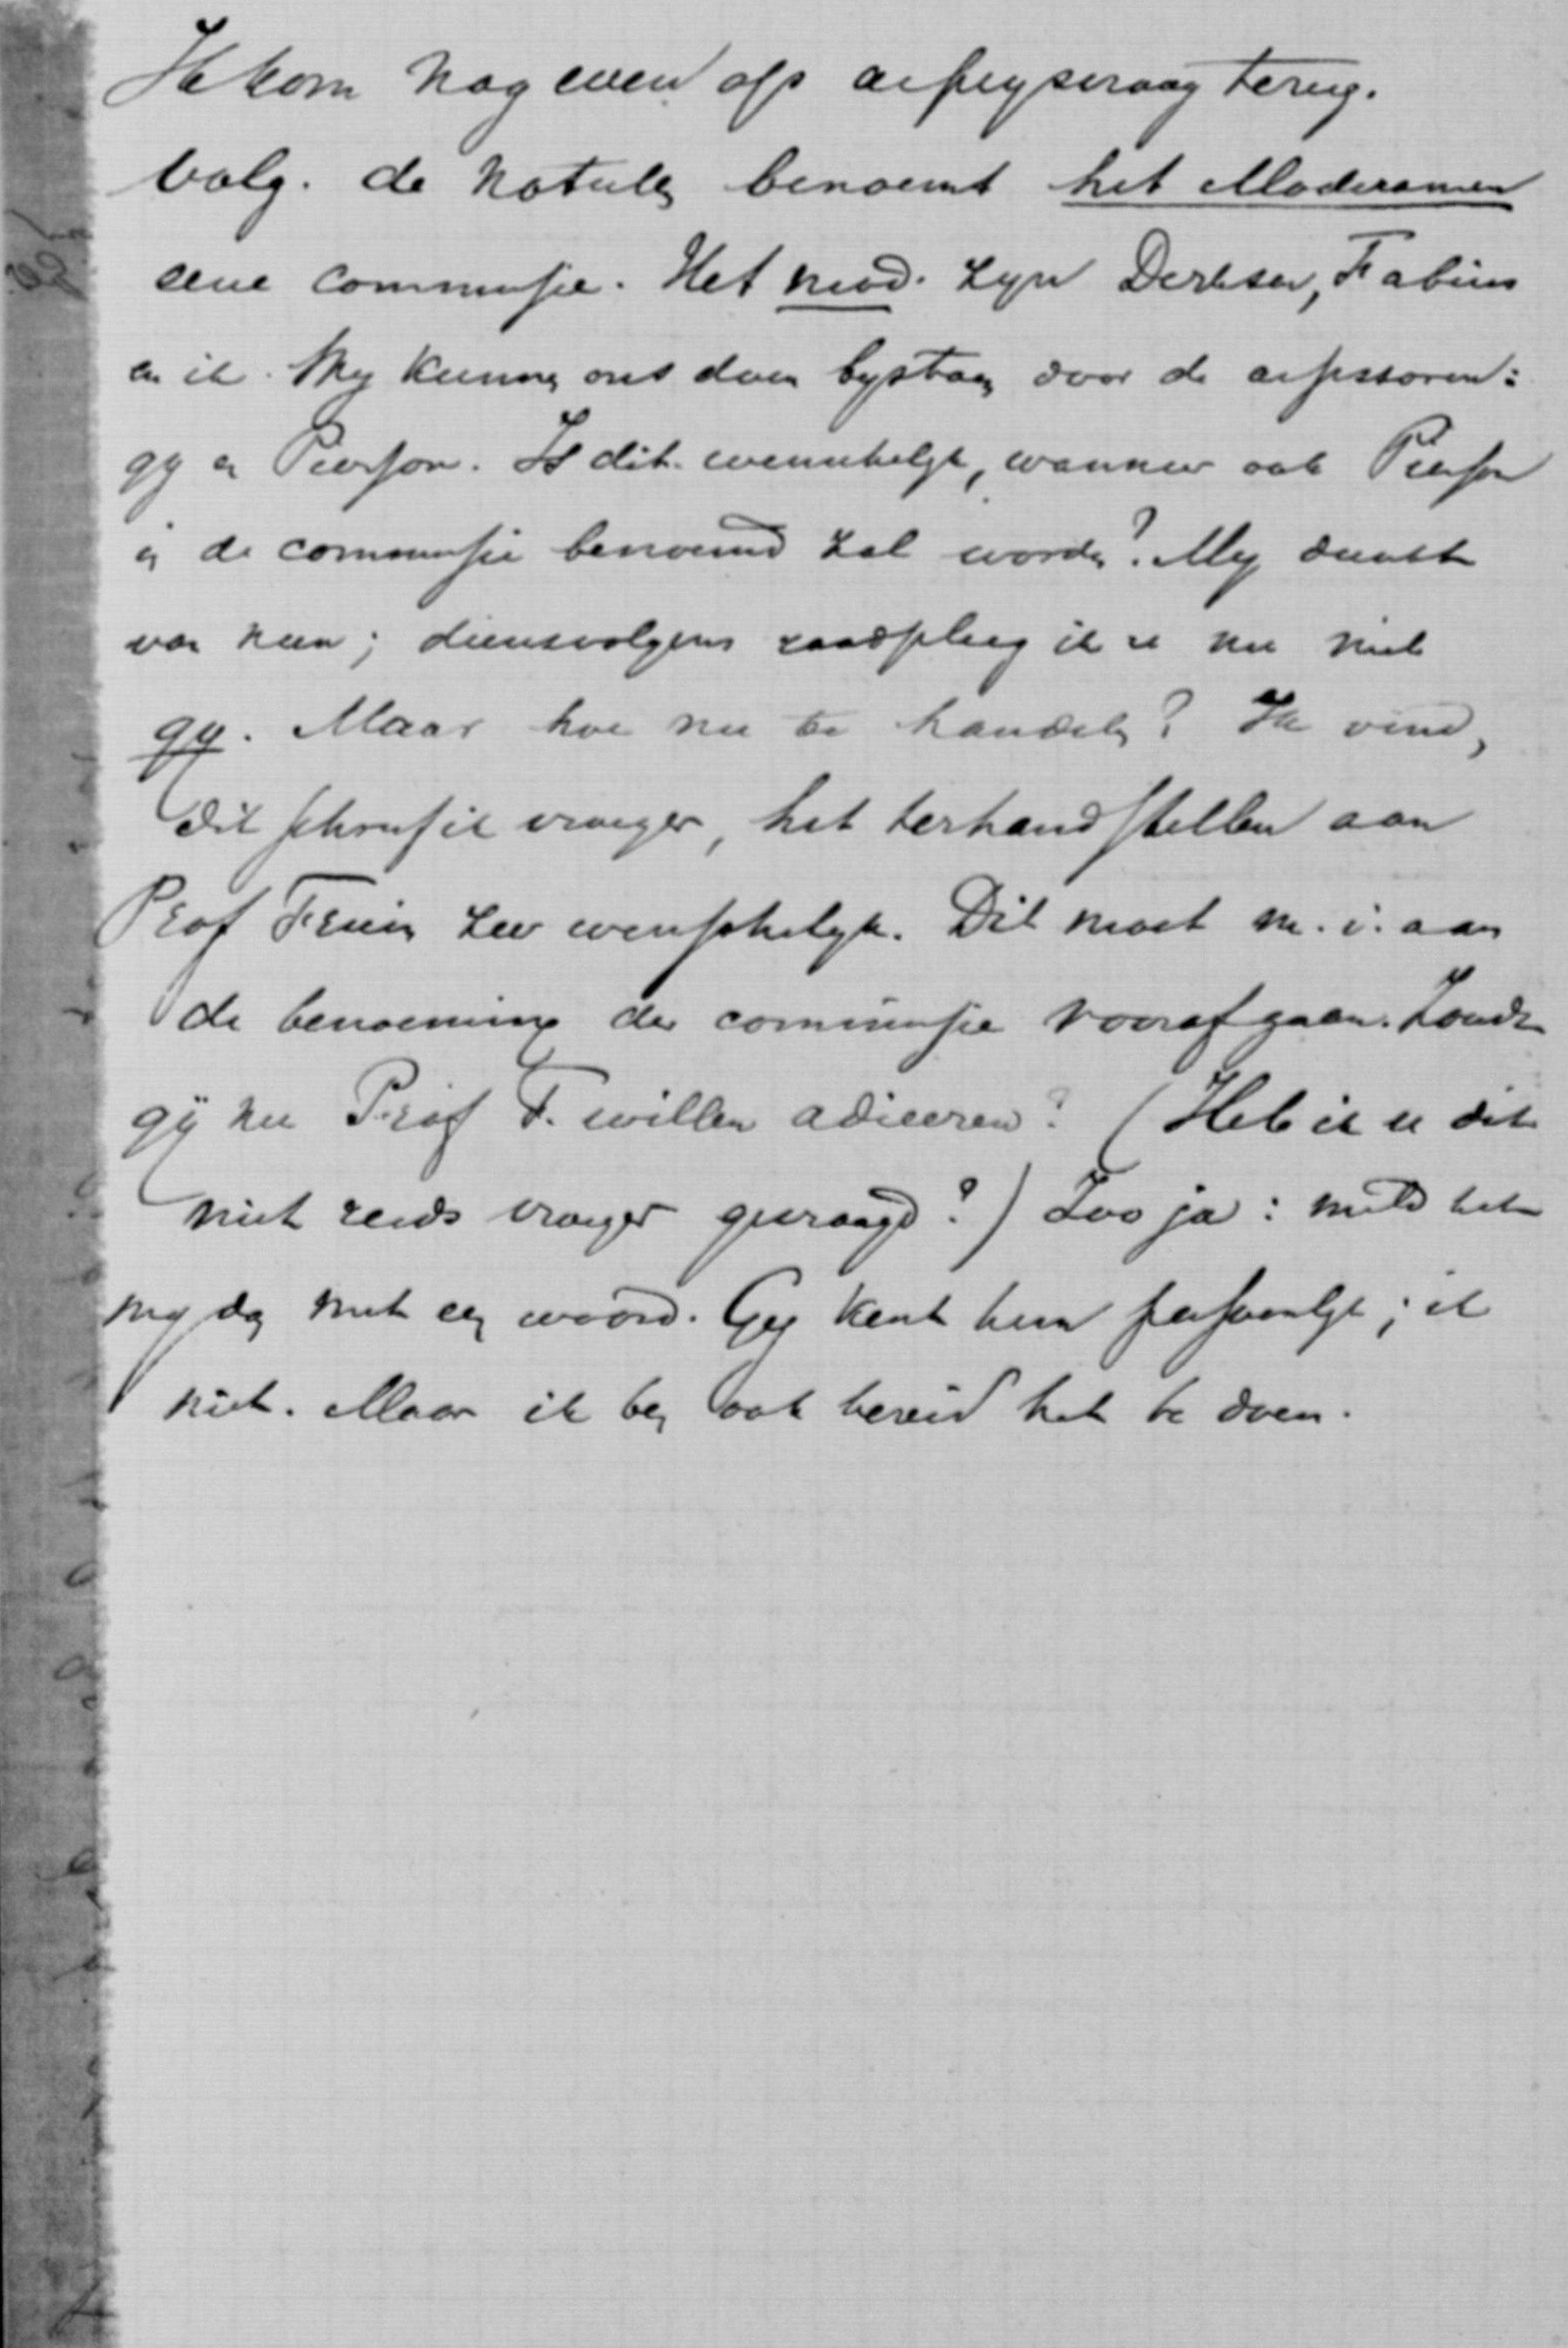 Ik kom nog even op de prysvraag terug.
Volg. de notulen benoemt het Moderamen
eene commissie. Het mod. zyn Derksen, Fabius
en ik. Wy kunnen ons doen bystaan door de assessoren:
gy en Pierson. Is dit wenschelyk, wanneer ook Pierson
in de commissie benoemd zal worden? My dunkt
van neen; diensvolgens raadpleeg ik u nu niet
gy. Maar hoe nu te handelen? Ik vind,
dit schreef ik vroeger, het terhandstellen aan
Prof Fruin zeer wenschelyk. Dit moet m. i. aan
de benoeming der commissie voorafgaan. Zoudt
gÿ nu Prof F. willen adieeren? (Heb ik u dit
niet reeds vroeger gevraagd?) Zoo ja: meld het
my dan met een woord. Gy kent hem persoonlyk; ik
niet. Maar ik ben ook bereid het te doen.